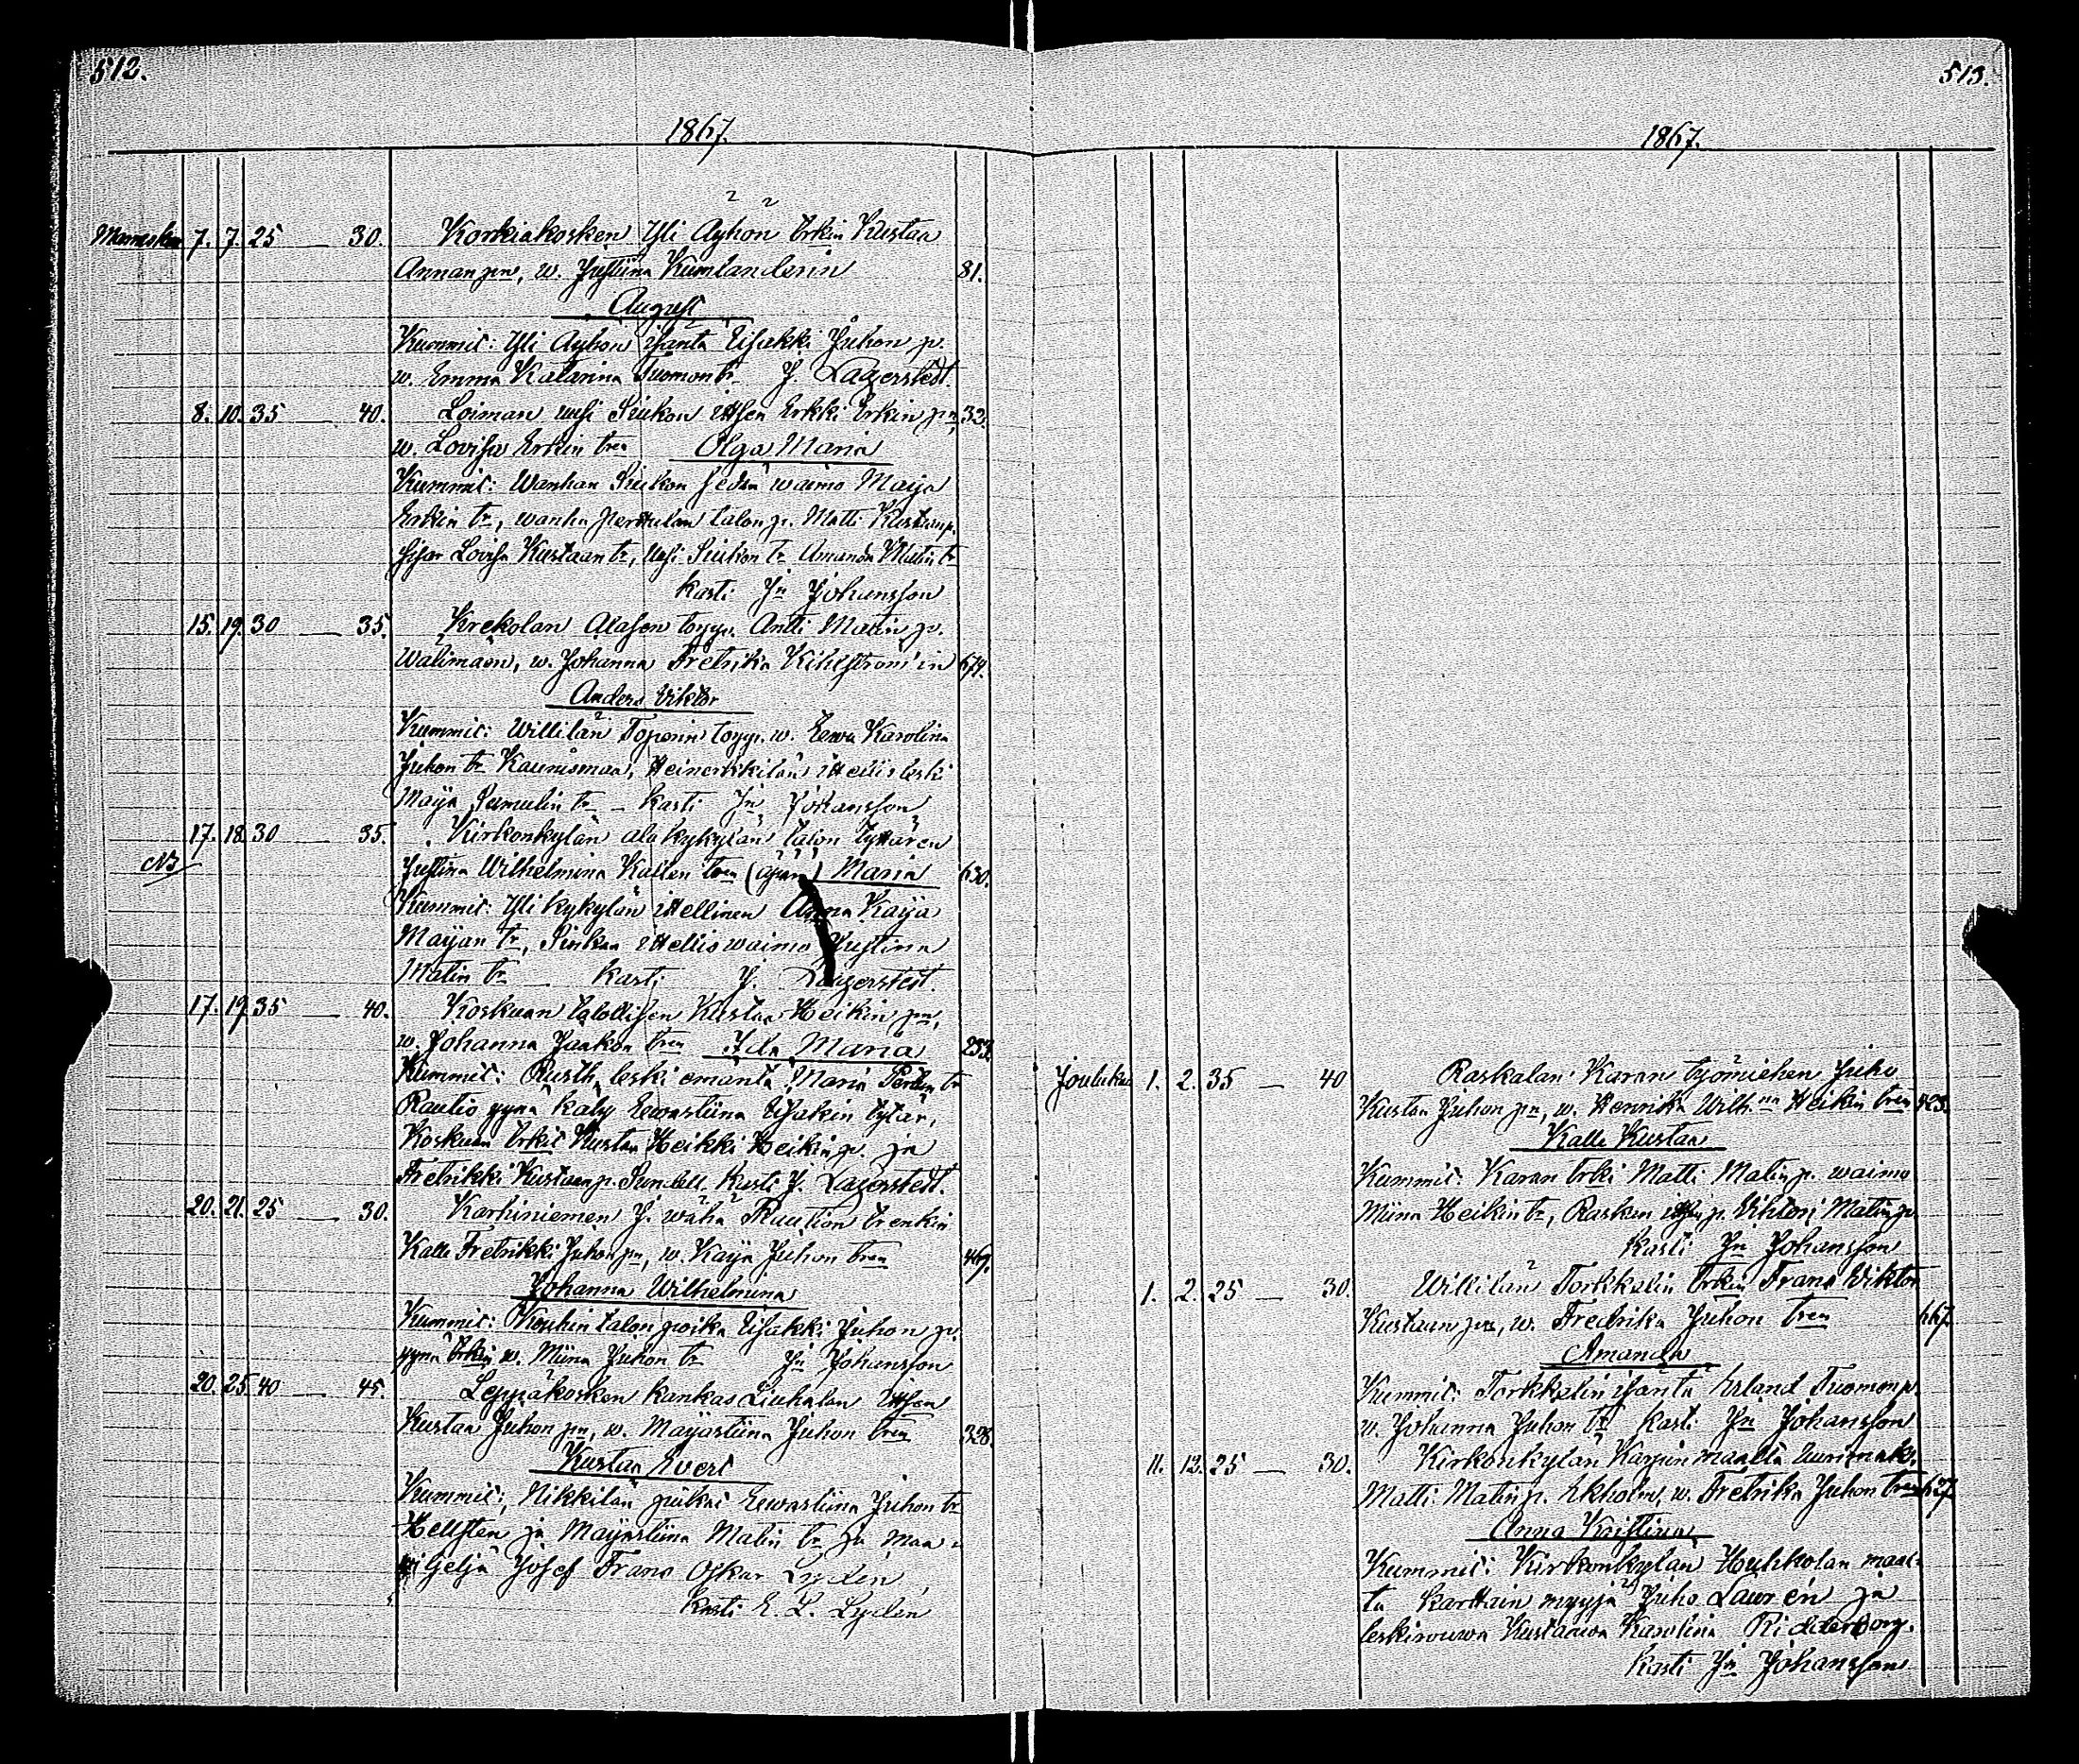 512.
1867.
Marrask. 7. 7. 25 — 30. Korkiakosken Yli Ayhon trkin Kustaa
Annan pn, w. Justiina Kumlanderin 81.
August
Kummit: Yli Ayhon isäntä Eisakki Juhon p.
w. Emma Katarina Tuomon tr J. Lagerstedt.
8. 10. 35 — 40. Loiman uusi Siukon ittsen Erkki Erkin pn, 32.
w. Lovisa Erkin tren Olga Maria
Kummit: Wanhan Siukon sedän waimo Maija
Erkin tr, wanha perttulan talon p. Matti Kustaan p.
sisar Lovisa Kustaan tr, Uusi Siukon tr Amanda Matin tr
kasti Jn Johansson
15. 19. 30 — 35. Krekolan Alasen torpp. Antti Matin p.
Walimaan, w. Johanna Fretrika Kihlströmin 674.
Anders Viktor
Kummit: Willilän Toperin torpp. w. Eewa Karolina
Juhon tr Kaunismaa, Heinerikilän ittellis leski
Maija Samulin tr — kasti Jn Johansson
17. 18. 30 — 35. Kirkonkylän ala kykylän talon tyttären
NB
Justina Wilhelmina Kallen tren (äpärä) Maria 630.
Kummit: Yli kykylän ittellinen Anna Kaija
Maijan tr, Siukan ittellis waimo Justina
Matin tr — kasti J. Lagerstedt.
17. 19. 35 — 40. Koskuan talollisen Kustaa Heikin pn,
w. Johanna Jaakon tren Ida Maria 253.
Kummit: Rusth. leski emäntä Maria Pertun tr
Rautio ynnä käly Eewastiina Eisakin tytär,
Koskuan trkit Kustaa Heikki Heikin p. ja
Fretrikki Kustaan p. Sundell. Kasti J. Lagerstedt.
20. 21. 25 — 30. Karhiniemen J. wähä Raution trenkin
Kalle Fretrikki Juhon pn, w. Kaija Juhon tren 467.
Johanna Wilhelmina
Kummit: Kouhin talon poika Eisakki Juhon p.
ynnä trkin w. Miina Juhon tr Jn Johansson
20. 25. 40 — 45. Leppäkosken kankas Liuhalan ittsen
Kustaa Juhon pn, w. Maijastiina Juhon tren 328.
Kustaa Evert
Kummit: Nikkilän piikat Eewastiina Juhon tr
Hellsten ja Maijastiina Matin tr ja maan
wiljeljä Josef Frans Oskar Lydén
kasti E. L. Lydén
513.
1867.
Jouluku 1. 2. 35 — 40 Raskalan Karan työmiehen Juho
Kustaa Juhon pn, w. Henrika Wilh:na Heikin tren
Kalle Kustaa
Kummit: Karan trki Matti Matin p. waimo
Miina Heikin tr, Rasken ittsen p. Vihtori Matin p.
kasti Jn Johansson
1. 2. 25 — 30. Willilän Torkkelin trkin Frans Viktor
Kustaan pn, w. Fredrika Juhon tren 667.
Amanda
Kummit: Torkkelin isäntä Erland Tuomon p.
w. Johanna Juhon tr kasti Jn Johansson
11. 12. 25 — 30. Kirkonkylän Karpin maalta nuorimak.
Matti Matin p. Ekholm, w. Fretrika Juhon tren 627
Anna Kristina
Kummit: Kirkonkylän Houhkolan maal-
ta karttain myyjä Juho Lauren ja
leskirouwa Kustaawa Karolina Ridderborg.
kasti Jn Johansson